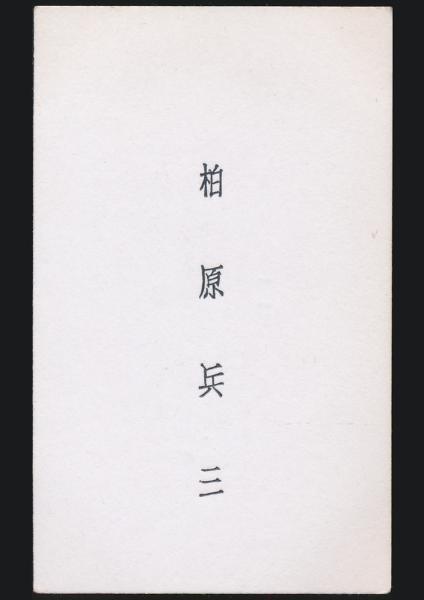 柏原兵三